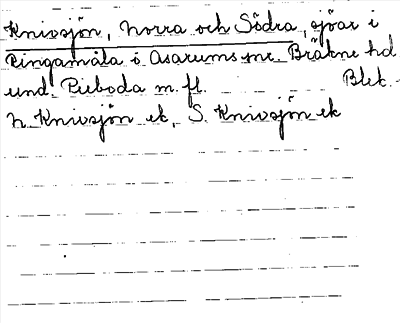 Knivsjön, Norra och Södra, sjöar i
Ringamåla o. Asarums snr. Bräkne hd
und. Puboda m. fl. Blek.
N. Knivsjön ek, S. Knivsjön ek